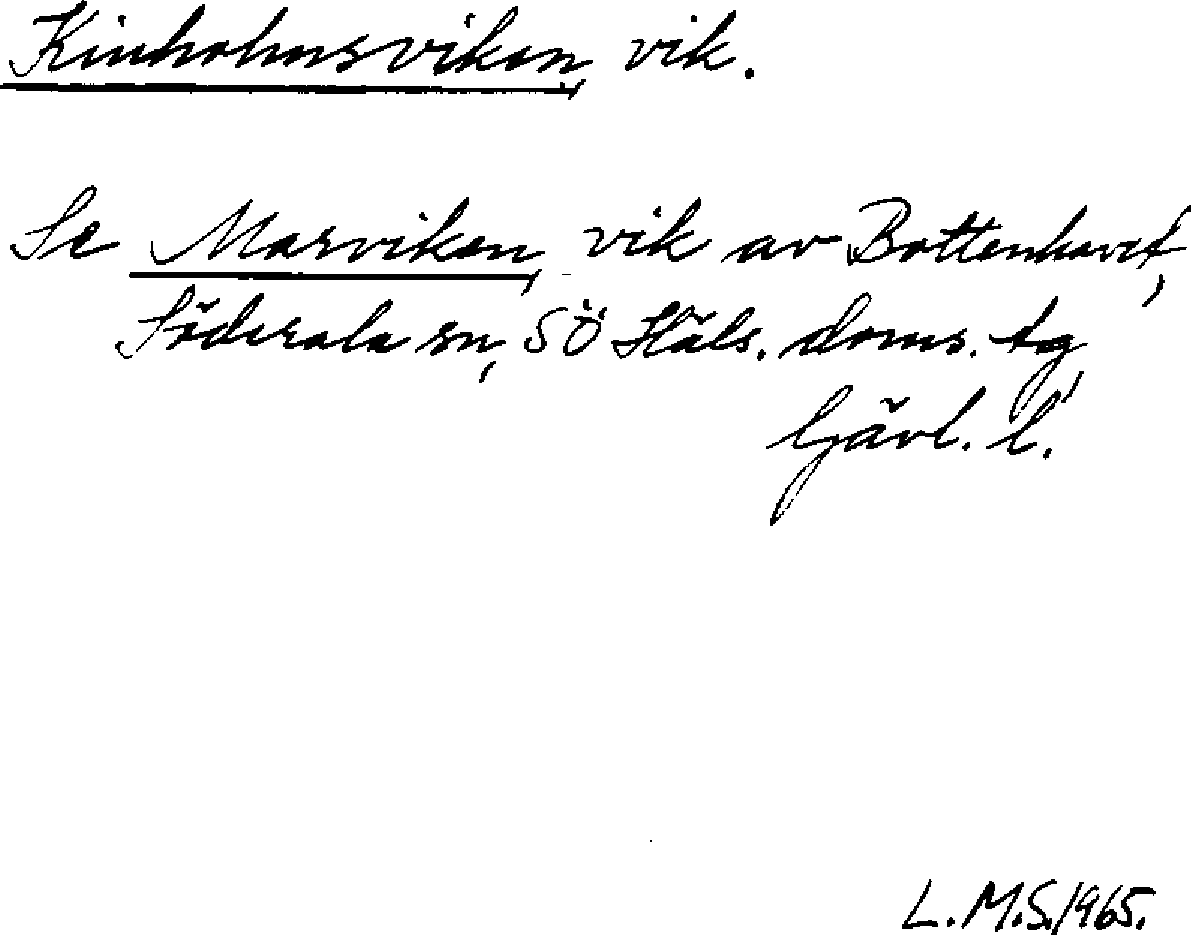 Kinholmsviken, vik.
Se Marviken, vik av Bottenhavet,
Söderala sn, SÖ Häls. doms. tg,
Gävl. l.
L.M.S. 1965.